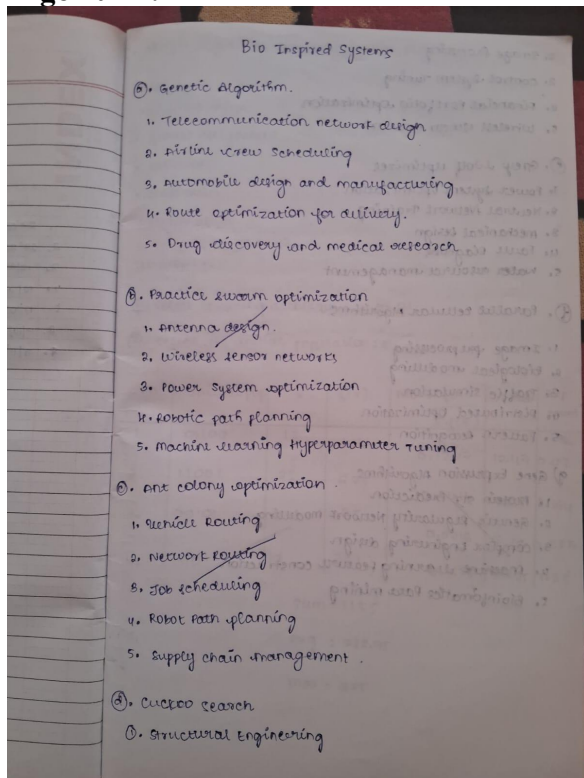 Bio Inspired Systems
a. Genetic Algorithm.
1. Telecommunication network design
2. Airline crew scheduling
3. Automobile design and manufacturing
4. Route optimization for delivery.
5. Drug discovery and medical research
b. Practice swarm optimization
1. Antenna design.
2. Wireless sensor networks
3. Power system optimization
4. Robotic path planning
5. Machine learning Hyperparameter Tuning
c. Ant colony optimization.
1. Vehicle Routing
2. Network Routing
3. Job scheduling
4. Robot Path planning
5. Supply chain management.
d. Cuckoo search
1. Structural Engineering